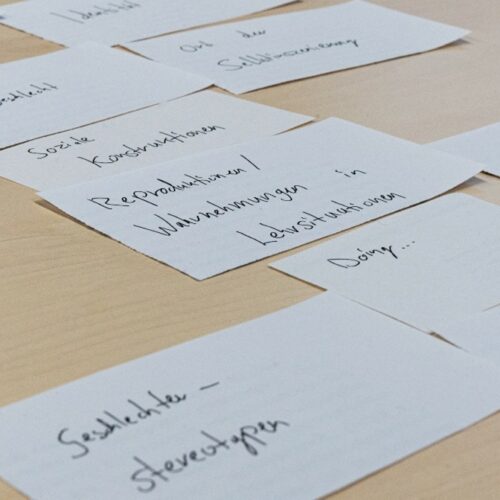 Identität
Ort der
Selbstinszenierung
Geschlecht
Soziale
Konstruktionen
Reproduktionen/
Wahrnehmungen in
Lehrsituationen
Doing...
Geschlechter-
stereotypen